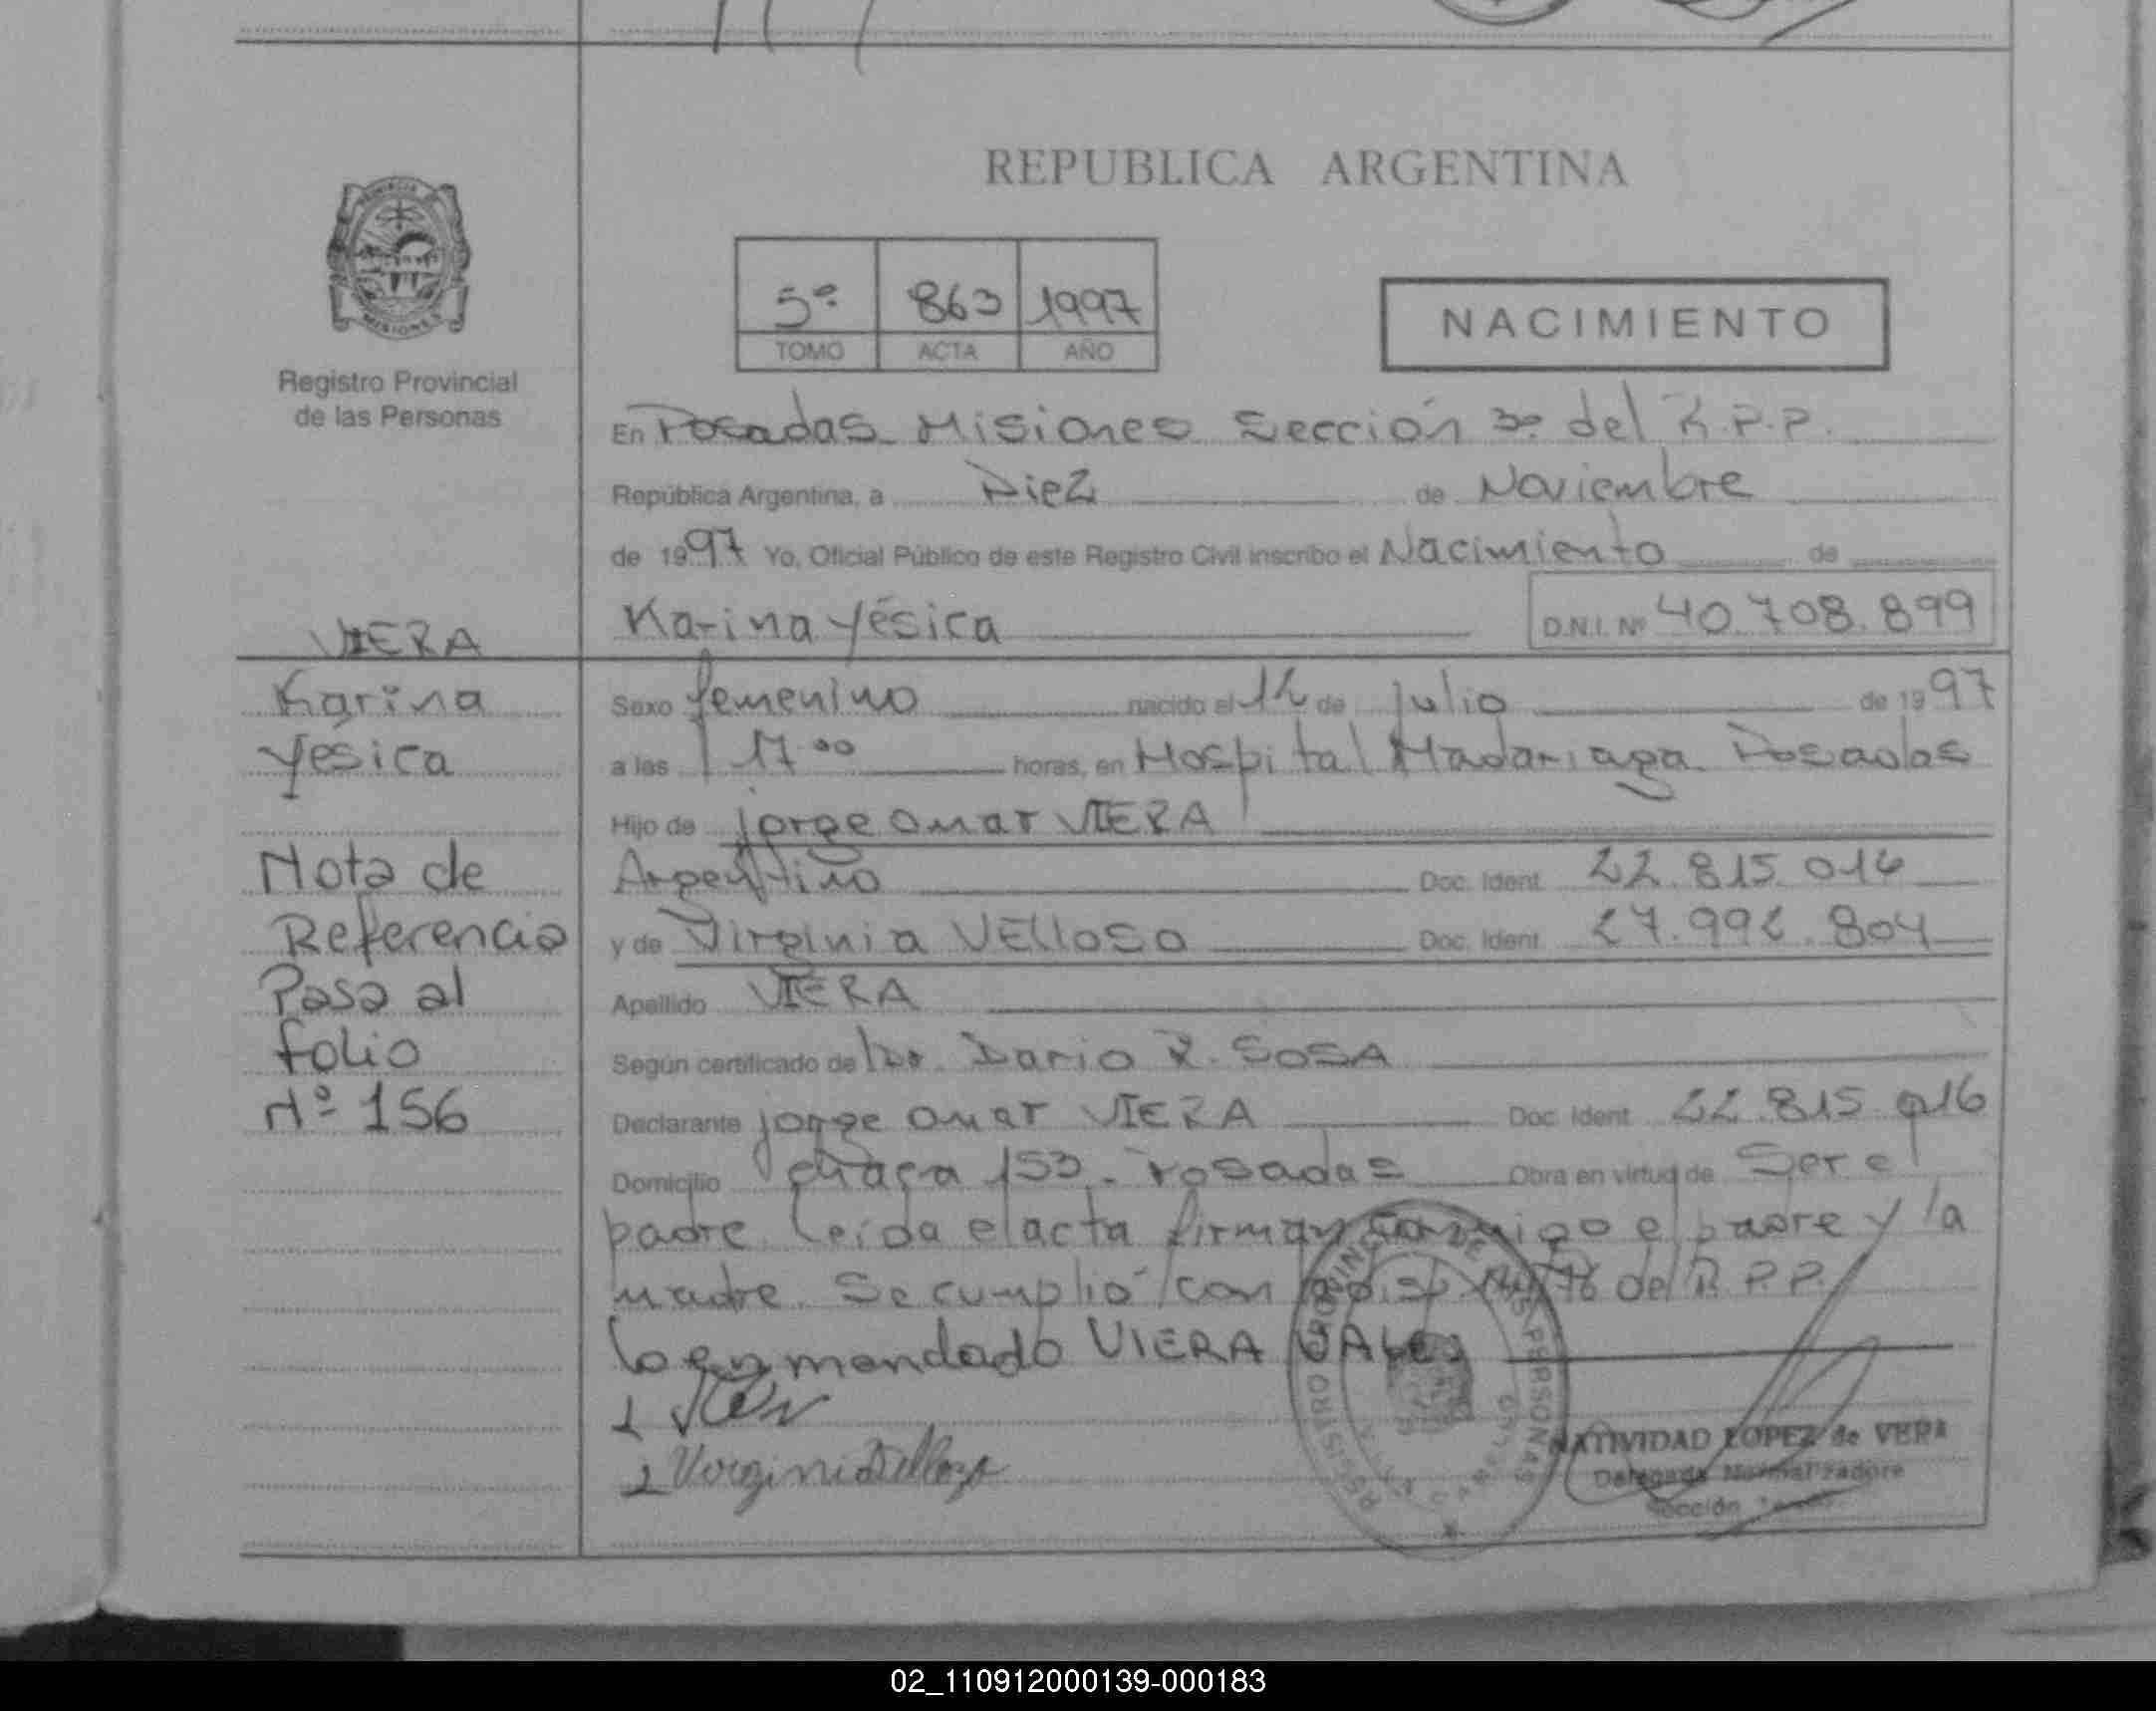 REPUBLICA ARGENTINA
5º 863 1997
TOMO ACTA AÑO
NACIMIENTO
PROVINCIA
MISIONES
Registro Provincial
de las Personas
En Posadas Misiones Sección 3º del R.P.P.
República Argentina, a Diez de Noviembre
de 1997 Yo, Oficial Público de este Registro Civil inscribo el Nacimiento de
Karina Yésica D.N.I. Nº 40.708.899
VIERA
Karina
Yésica
Nota de
Referencia
Pasa al
folio
Nº 156
Sexo femenino nacido el de julio de 1997
a las 17 00 horas, en Hospital Madariaga Posadas
Hijo de jorge omar VIERA
Argentino Doc. Ident. 22.815.016
y de Virginia VEllOSO Doc. Ident. 27.992.804
Apellido VIERA
Según certificado de Dr. Dario R. SOSA
Declarante jorge omar VIERA Doc. Ident. 22.815.016
Domicilio chacra 153 - Posadas Obra en virtud de Ser el
padre. Leída el acta firman conmigo el padre y la
madre. Se cumplió con disp 76 del R.P.P.
lo enmendado VIERA VALE
1
2 Virginia Velloso
REGISTRO PROVINCIAL DE LAS PERSONAS
NATIVIDAD LOPEZ de VERA
Delegada Normalizadora
Sección
02_110912000139-000183